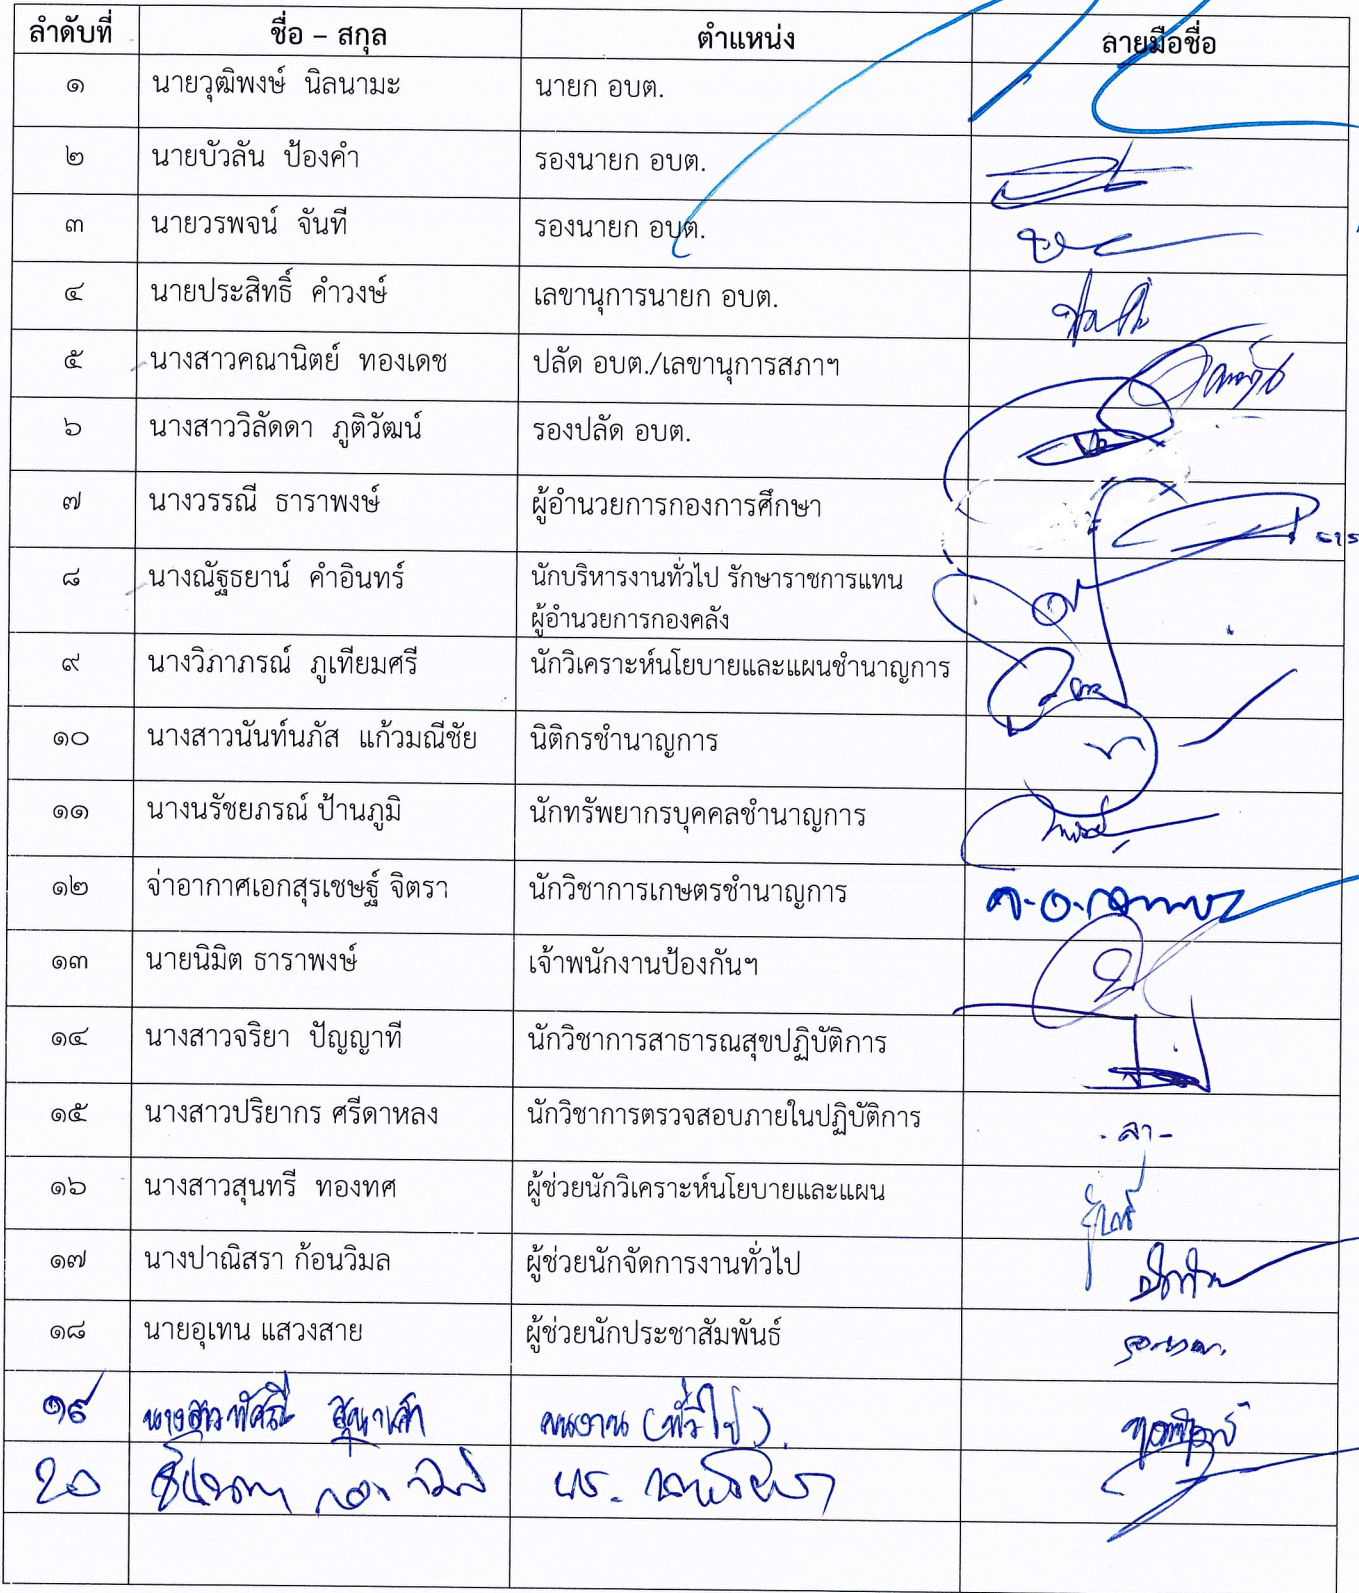 ลำดับที่ ชื่อ – สกุล ตำแหน่ง ลายมือชื่อ
๑ นายวุฒิพงษ์ นิลนามะ นายก อบต.
๒ นายบัวลัน ป้องคำ รองนายก อบต.
๓ นายวรพจน์ จันที รองนายก อบต.
๔ นายประสิทธิ์ คำวงษ์ เลขานุการนายก อบต.
๕ นางสาวคณานิตย์ ทองเดช ปลัด อบต./เลขานุการสภาฯ
๖ นางสาววิลัดดา ภูติวัฒน์ รองปลัด อบต.
๗ นางวรรณี ธาราพงษ์ ผู้อำนวยการกองการศึกษา
๘ นางณัฐธยาน์ คำอินทร์ นักบริหารงานทั่วไป รักษาราชการแทน
ผู้อำนวยการกองคลัง
๙ นางวิภาภรณ์ ภูเทียมศรี นักวิเคราะห์นโยบายและแผนชำนาญการ
๑๐ นางสาวนันท์นภัส แก้วมณีชัย นิติกรชำนาญการ
๑๑ นางนรัชยภรณ์ ป้านภูมิ นักทรัพยากรบุคคลชำนาญการ
๑๒ จ่าอากาศเอกสุรเชษฐ์ จิตรา นักวิชาการเกษตรชำนาญการ
๑๓ นายนิมิต ธาราพงษ์ เจ้าพนักงานป้องกันฯ
๑๔ นางสาวจริยา ปัญญาที นักวิชาการสาธารณสุขปฏิบัติการ
๑๕ นางสาวปริยากร ศรีดาหลง นักวิชาการตรวจสอบภายในปฏิบัติการ - ลา -
๑๖ นางสาวสุนทรี ทองทศ ผู้ช่วยนักวิเคราะห์นโยบายและแผน
๑๗ นางปาณิสรา ก้อนวิมล ผู้ช่วยนักจัดการงานทั่วไป
๑๘ นายอุเทน แสวงสาย ผู้ช่วยนักประชาสัมพันธ์
๑๙ นางสาว คนงาน (ทั่วไป)
๒๐